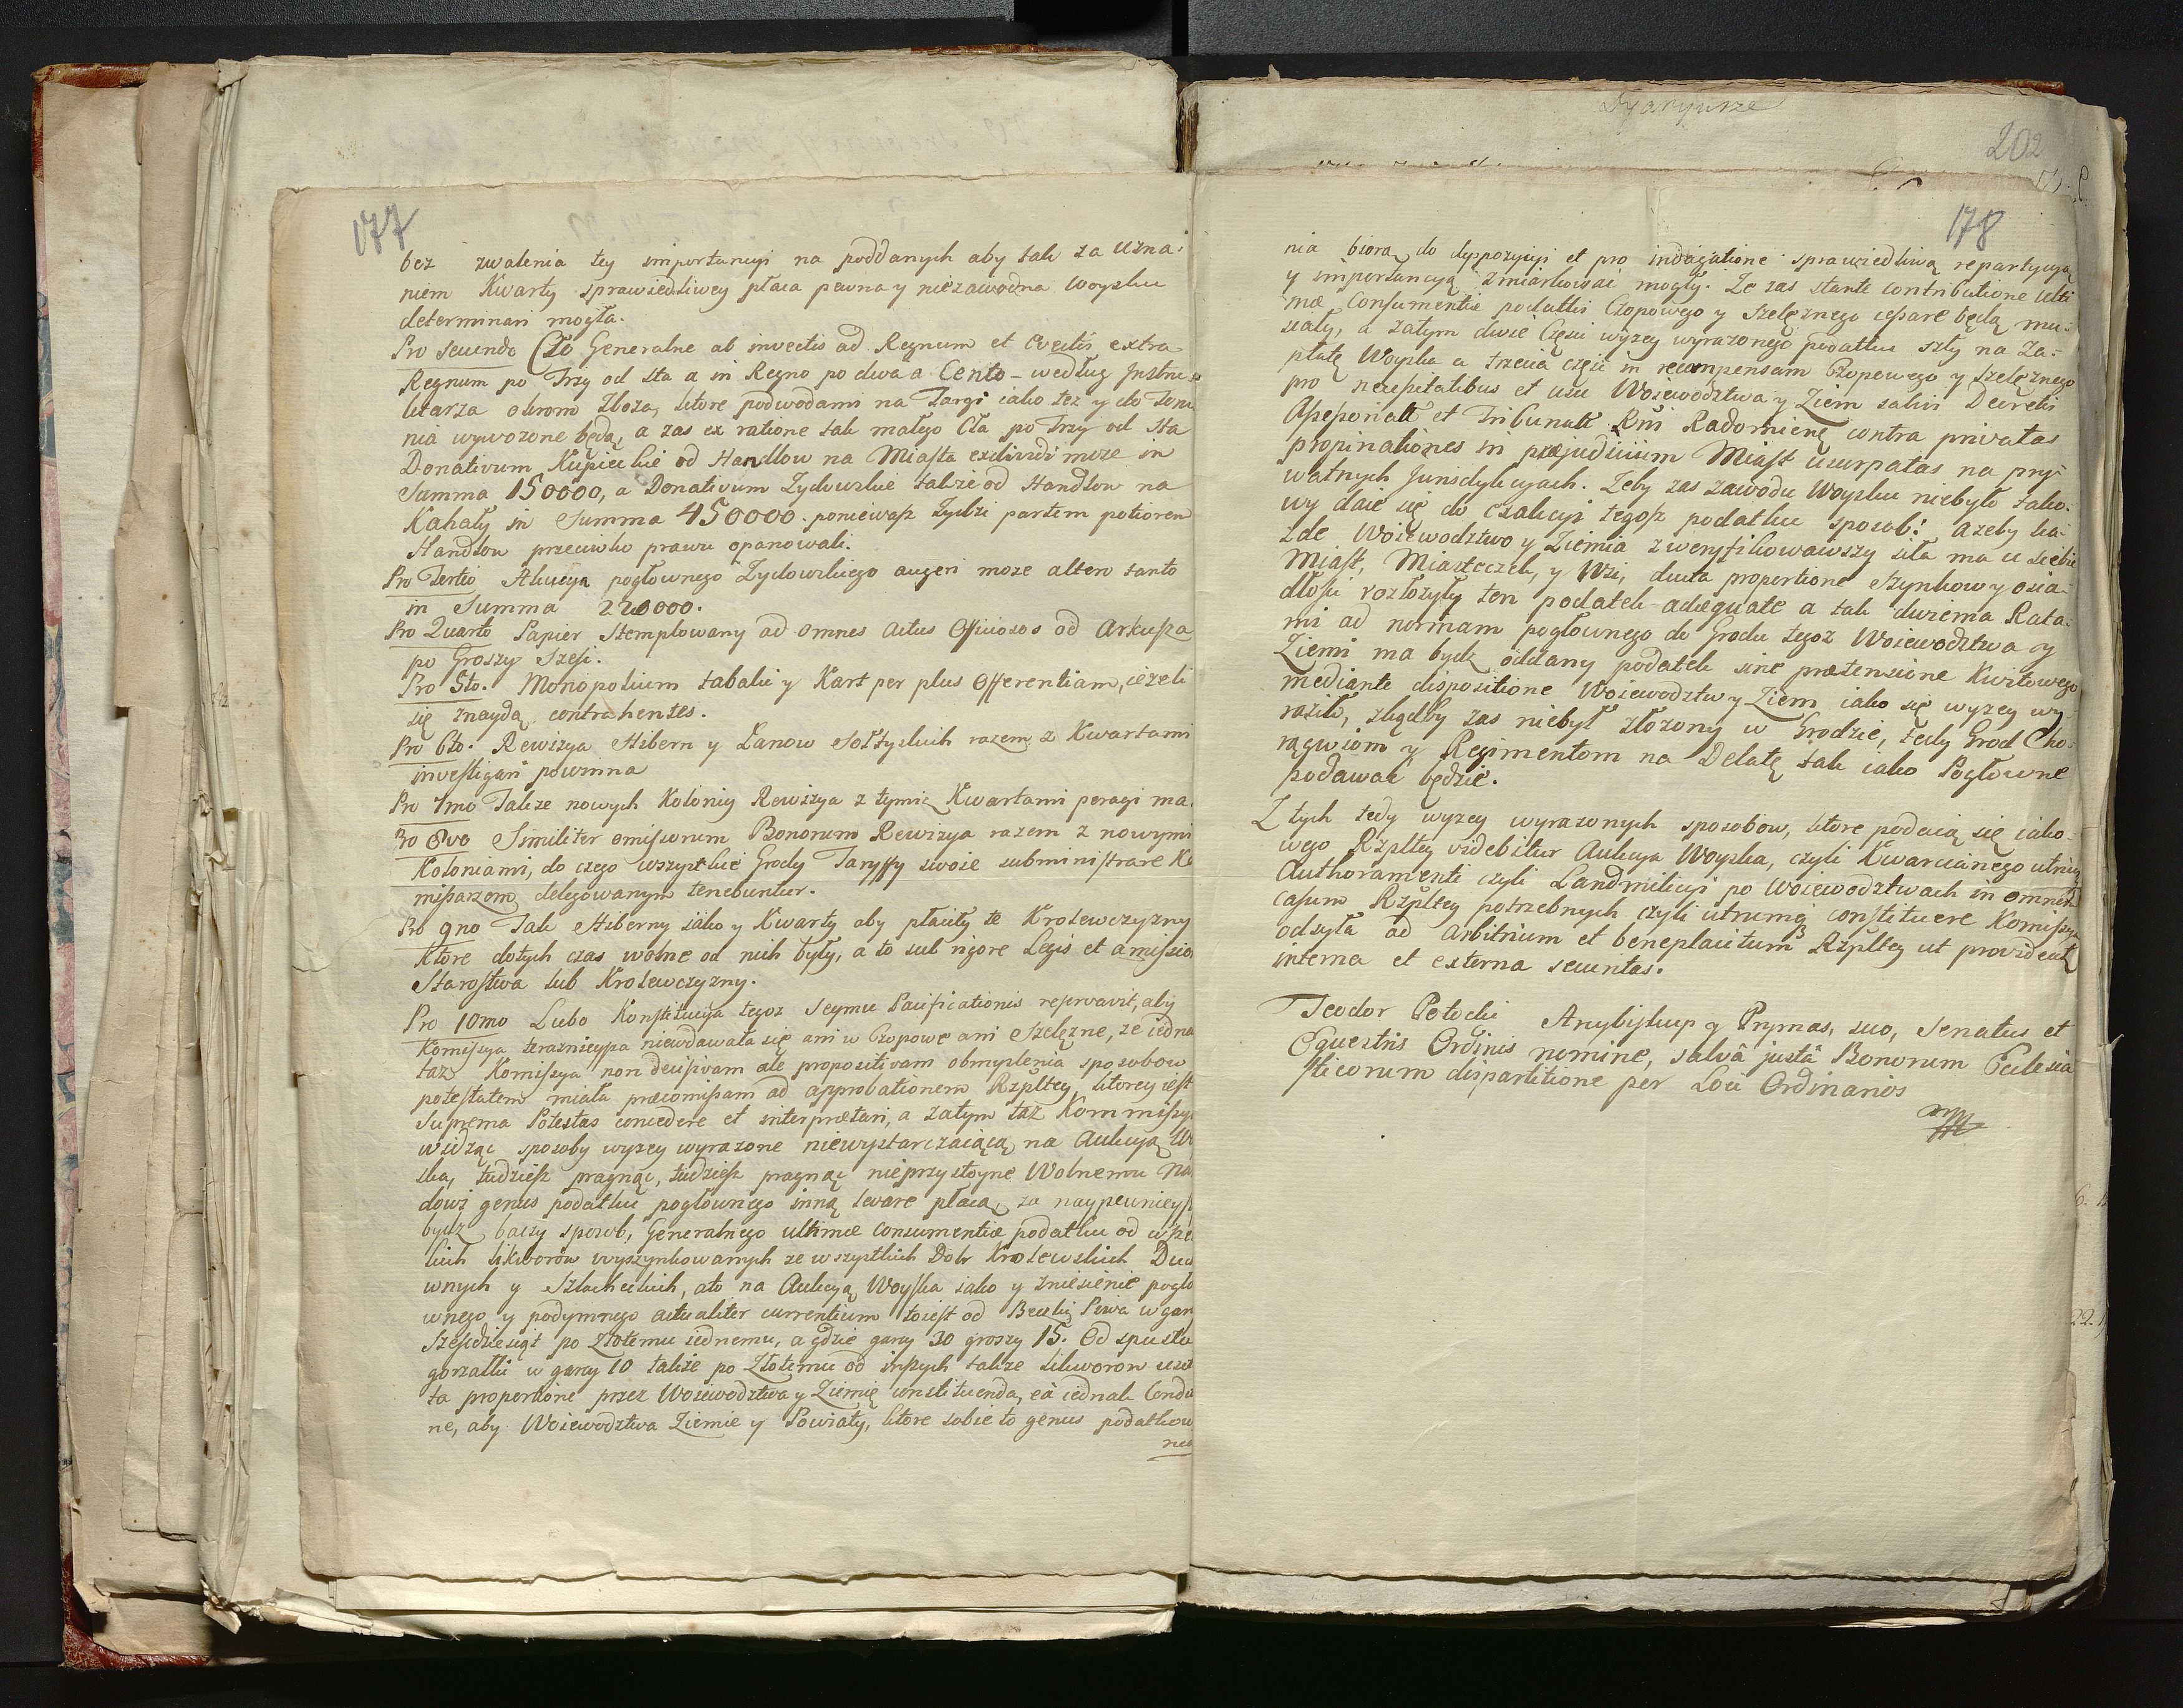 177
bez zwalenia tey importancyi na poddanych aby tak za uzna:
niem Kwarty sprawiedliwey płaca pewna y niezawodna woysku
determinari mogła.
Pro secundo Cło Generalne ab invectis ad Regnum et Evectis extra
Regnum po Trzy od sta a in Regno po dwa a Cento – według Jnstru
ktarza okrom zboza, ktore podwodami na Targi iako tez y do
nia wywozone będą, a zas ex ratione tak małego Cła po Trzy od sta
Donativum Kupieckie od Handlow na Miasta moze in
Summa 150000, a Donativum Zydowskie takze od Handlow na
Kahały in Summa 450000. poniewasz Zydzi partem potiorem
Handlow przeciwko prawu opanowali.
Pro Tertio Akucya pogłownego Zydowskiego augeri moze altero tanto
in Summa 220000.
Pro Quarto Papier Stemplowany ad omnes actus Officiosos od Arkusza
po Groszy Szesc.
Pro 5to. Monopolium tabaki y Kart per plus Offerentiam, iezeli
się znaydą contrahentes.
Pro 6to. Rewizya Hibern y Łanow Sołtyskich razem z Kwartami
investigari powinna
Pro 7mo Takze nowych Kolonij Rewizya z tymiz Kwartami peragi ma.
Pro 8vo Similiter omissorum Bonorum Rewizya razem z nowymi
Koloniami, do czego wszystkie Grody Taryffy swoie subministrare Ko
missarzom delegowanym tenebuntur.
Pro 9no Tak Hiberny iako y Kwarty aby płaciły te Krolewczyzny
Ktore dotych czas wolne od nich były, a to sub rigore Legis et amissio
Starostwa lub Krolewczyzny.
Pro 10mo Lubo Konstitucya tegoz Seymu Pacificationis reservavit, aby
Komissya teraznieysza niewdawała się ani w Czopowe ani Szelęzne, ze iedna
taz Komissya non decisivam ale propositivam obmyslenia sposobow
potestatem miała præcomissam ad approbationem Rzpltey, ktorey iest
Suprema Potestas concedere et interpretari, a zatym taz Kommissya
widząc sposoby wyzey wyrazone niewystarczaiącą na Aukcyą Wo
ska, tudziesz pragnąc, tudziesz pragnąc nieprzystoyne Wolnemu Na
dowi genus podatku pogłownego inną levare płacą, za naypewnieysz
bydz baczy sposob, Generalnego ultimæ consumentiæ podatku od wsze
kich likworow wyszynkowanych ze wszystkich Dobr Krolewskich Duc
wnych y Szlacheckich, ato na Aukcyą Woyska iako y zniesienie pogło
wnego y podymnego actualiter currentium toiest od Beczki Piwa w gar
Szescdziesiąt po Złotemu iednemu, a gdzie garcy 30 groszy 15. Od spustu
gorzałki w garcy 10 takze po Złotemu od inszych takze likworow
ta proportione przez Woiewodztwa y Ziemię constituenda, eâ iednak Condi
ne, aby Woiewodztwa Ziemie y Powiaty, ktore sobie to genus podatkow
Dyaryusze
202
178
nia biorą do dyspozycyi et pro indagatione sprawiedliwą repartycyą
y importancyą zmiarkowac mogły. Ze zas stante contributione ulti
mæ Consumentiæ podatki Czopowego y Szelęznego cessare będą mu:
siały, a zatym dwie Częsci wyzey wyrazonego podatku szły na Za:
płatę Woyska a trzecia częsc in recompensam Czopowego y Szelęznego
pro necessitatibus et usu Woiewodztwa y Ziem salvis Decretis
Assessoriali et Tribunali Rni Radomiens contra privatas
propinationes in præjudicium Miast usurpatas na pry:
watnych Jurisdykcyach. Zeby zas zawodu Woysku niebyło tako:
wy daie się do exakcyi tegosz podatku sposob: azeby ka:
zde Woiewodztwo y Ziemia zweryfikowawszy siła ma u siebie
Miast, Miasteczek, y Wsi, ducta proportione szynkow y osia:
dłosci rozłozyły ten podatek adæquate a tak dwiema Rata:
mi ad normam pogłownego do Grodu tegoz Woiewodztwa y
Ziemi ma bydz oddany podatek sine prætensione Kwitowego
mediante dispositione Woiewodztw y Ziem iako się wyzey wy:
raziło, zkądby zas niebył złozony w Grodzie, tedy Grod Cho:
rągwiom y Regimentom na Delatę tak iako Pogłowne
podawac będzie.
Z tych tedy wyzey wyrazonych sposobow, ktore podaią się iako:
wego Rzpltey videbitur Aukcya Woyska, czyli Kwarcianego
Authoramenti czyli Landmilicyi po Woiewodztwach in omnem
casum Rzpltey potrzebnych czyli utrumq constituere Komissya
odsyła ad arbitrium et beneplacitum Rzpltey ut provideat
interna et externa securitas.
Teodor Potocki Arcybiskup y Prymas, suo, Senatus et
Equestris Ordinis nomine, salvâ justâ Bonorum Ecclesia
sticorum dispartitione per Loci Ordinarios